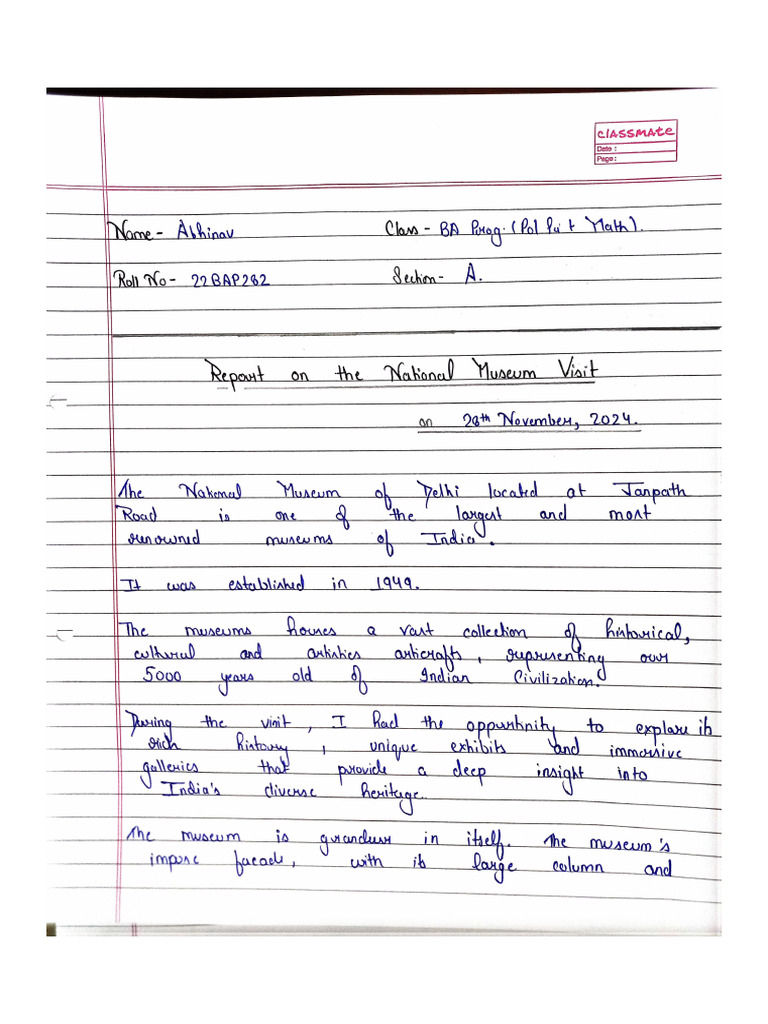 classmate
Date :
Page :
Name - Abhinav Class - BA Prog. (Pol Sci + Math).
Roll No - 22BAP282 Section - A.
Report on the National Museum Visit
on 28th November, 2024.
The National Museum of Delhi located at Janpath
Road is one of the largest and most
renowned museums of India.
It was established in 1949.
The museums houses a vast collection of historical,
cultural and artistics articrafts, representing our
5000 years old of Indian Civilization.
During the visit, I had the oppurtinity to explore its
rich history, unique exhibits and immersive
galleries that provide a deep insight into
India's diverse heritage.
The museum is grandeur in itself. The museum's
impose facade, with its large column and